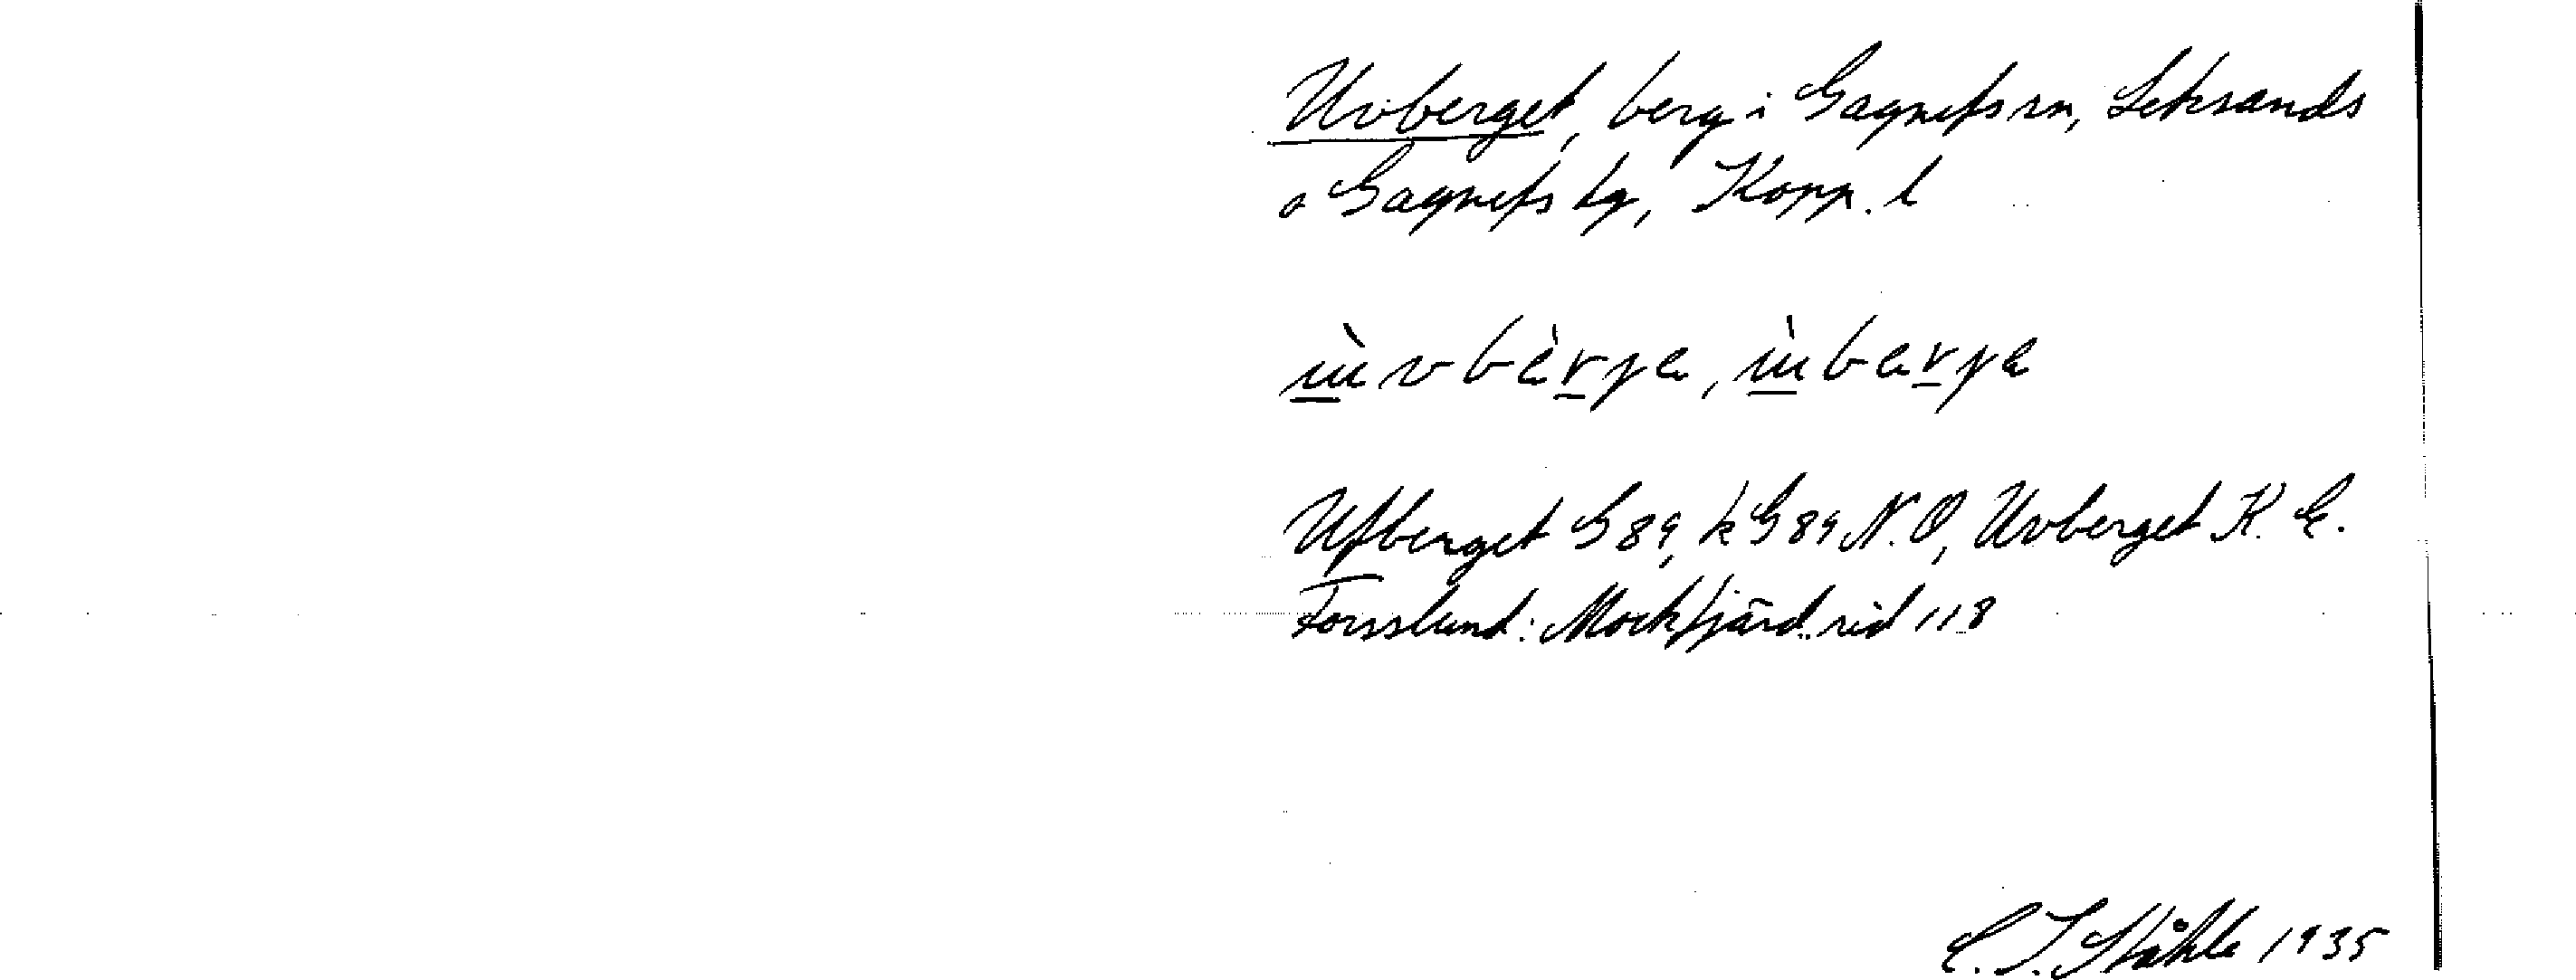 Uvberget, berg i Gagnefs sn, Leksands
o Gagnefs tg, Kopp. l
ùvbèrgɑ, ùbɑrgɑ
Ufberget G 89, k G 89 N.O, Uvberget K. E.
Forsslund: Mockfjärd sid 118
C. I. Ståhle 1935